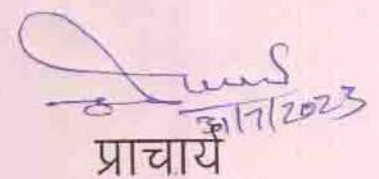 31/7/2023
प्राचार्य